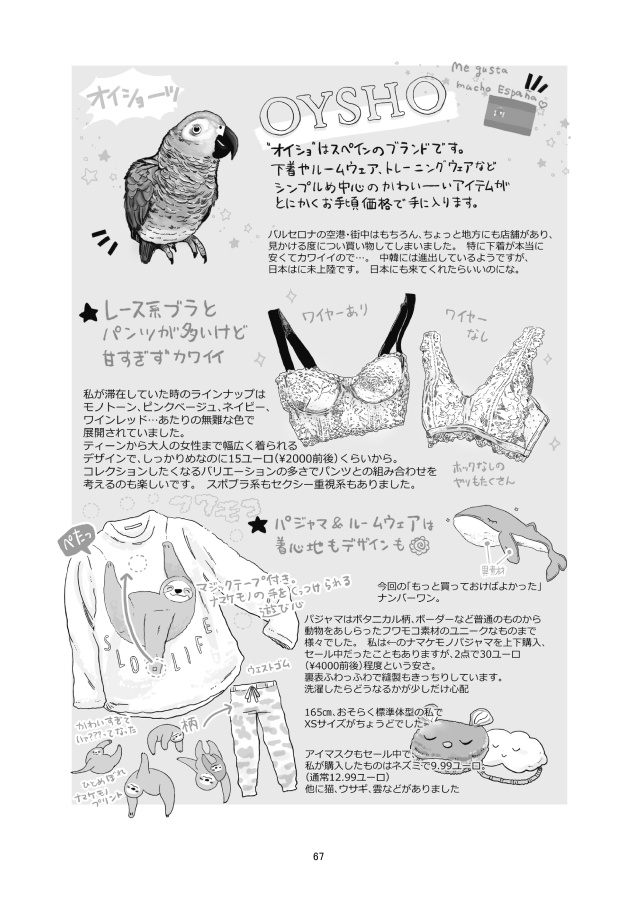 オイショーッ
OYSHO
Me gusta
mucho España
"オイショ"はスペインのブランドです。
下着やルームウェア、トレーニングウェアなど
シンプルめ中心のかわいーーいアイテムが
とにかくお手頃価格で手に入ります。
バルセロナの空港・街中はもちろん、ちょっと地方にも店舗があり、
見かける度につい買い物してしまいました。 特に下着が本当に
安くてカワイイので…。 中韓には進出しているようですが、
日本はに未上陸です。 日本にも来てくれたらいいのにな。
★レース系ブラと
パンツが多いけど
甘すぎずカワイイ
ワイヤーあり
ワイヤー
なし
私が滞在していた時のラインナップは
モノトーン、ピンクベージュ、ネイビー、
ワインレッド…あたりの無難な色で
展開されていました。
ティーンから大人の女性まで幅広く着られる
デザインで、しっかりめなのに15ユーロ(¥2000前後)くらいから。
コレクションしたくなるバリエーションの多さでパンツとの組み合わせを
考えるのも楽しいです。 スポブラ系もセクシー重視系もありました。
ホックなしの
ヤツもたくさん
フワモコ
★パジャマ&ルームウェアは
着心地もデザインも
ぺたっ
マジックテープ付き。
ナマケモノの手をくっつけられる
遊び心
SLOW LIFE
異素材
今回の「もっと買っておけばよかった」
ナンバーワン。
パジャマはボタニカル柄、ボーダーなど普通のものから
動物をあしらったフワモコ素材のユニークなものまで
様々でした。 私は←のナマケモノパジャマを上下購入、
セール中だったこともありますが、2点で30ユーロ
(¥4000前後)程度という安さ。
裏表ふわっふわで縫製もきっちりしています。
洗濯したらどうなるかが少しだけ心配
ウエストゴム
165㎝、おそらく標準体型の私で
XSサイズがちょうどでした
かわいすぎて
ハァ???ってなった
柄
ひとめぼれ
ナマケモノ
プリント
アイマスクもセール中で、
私が購入したものはネズミで9.99ユーロ。
(通常12.99ユーロ)
他に猫、ウサギ、雲などがありました
67